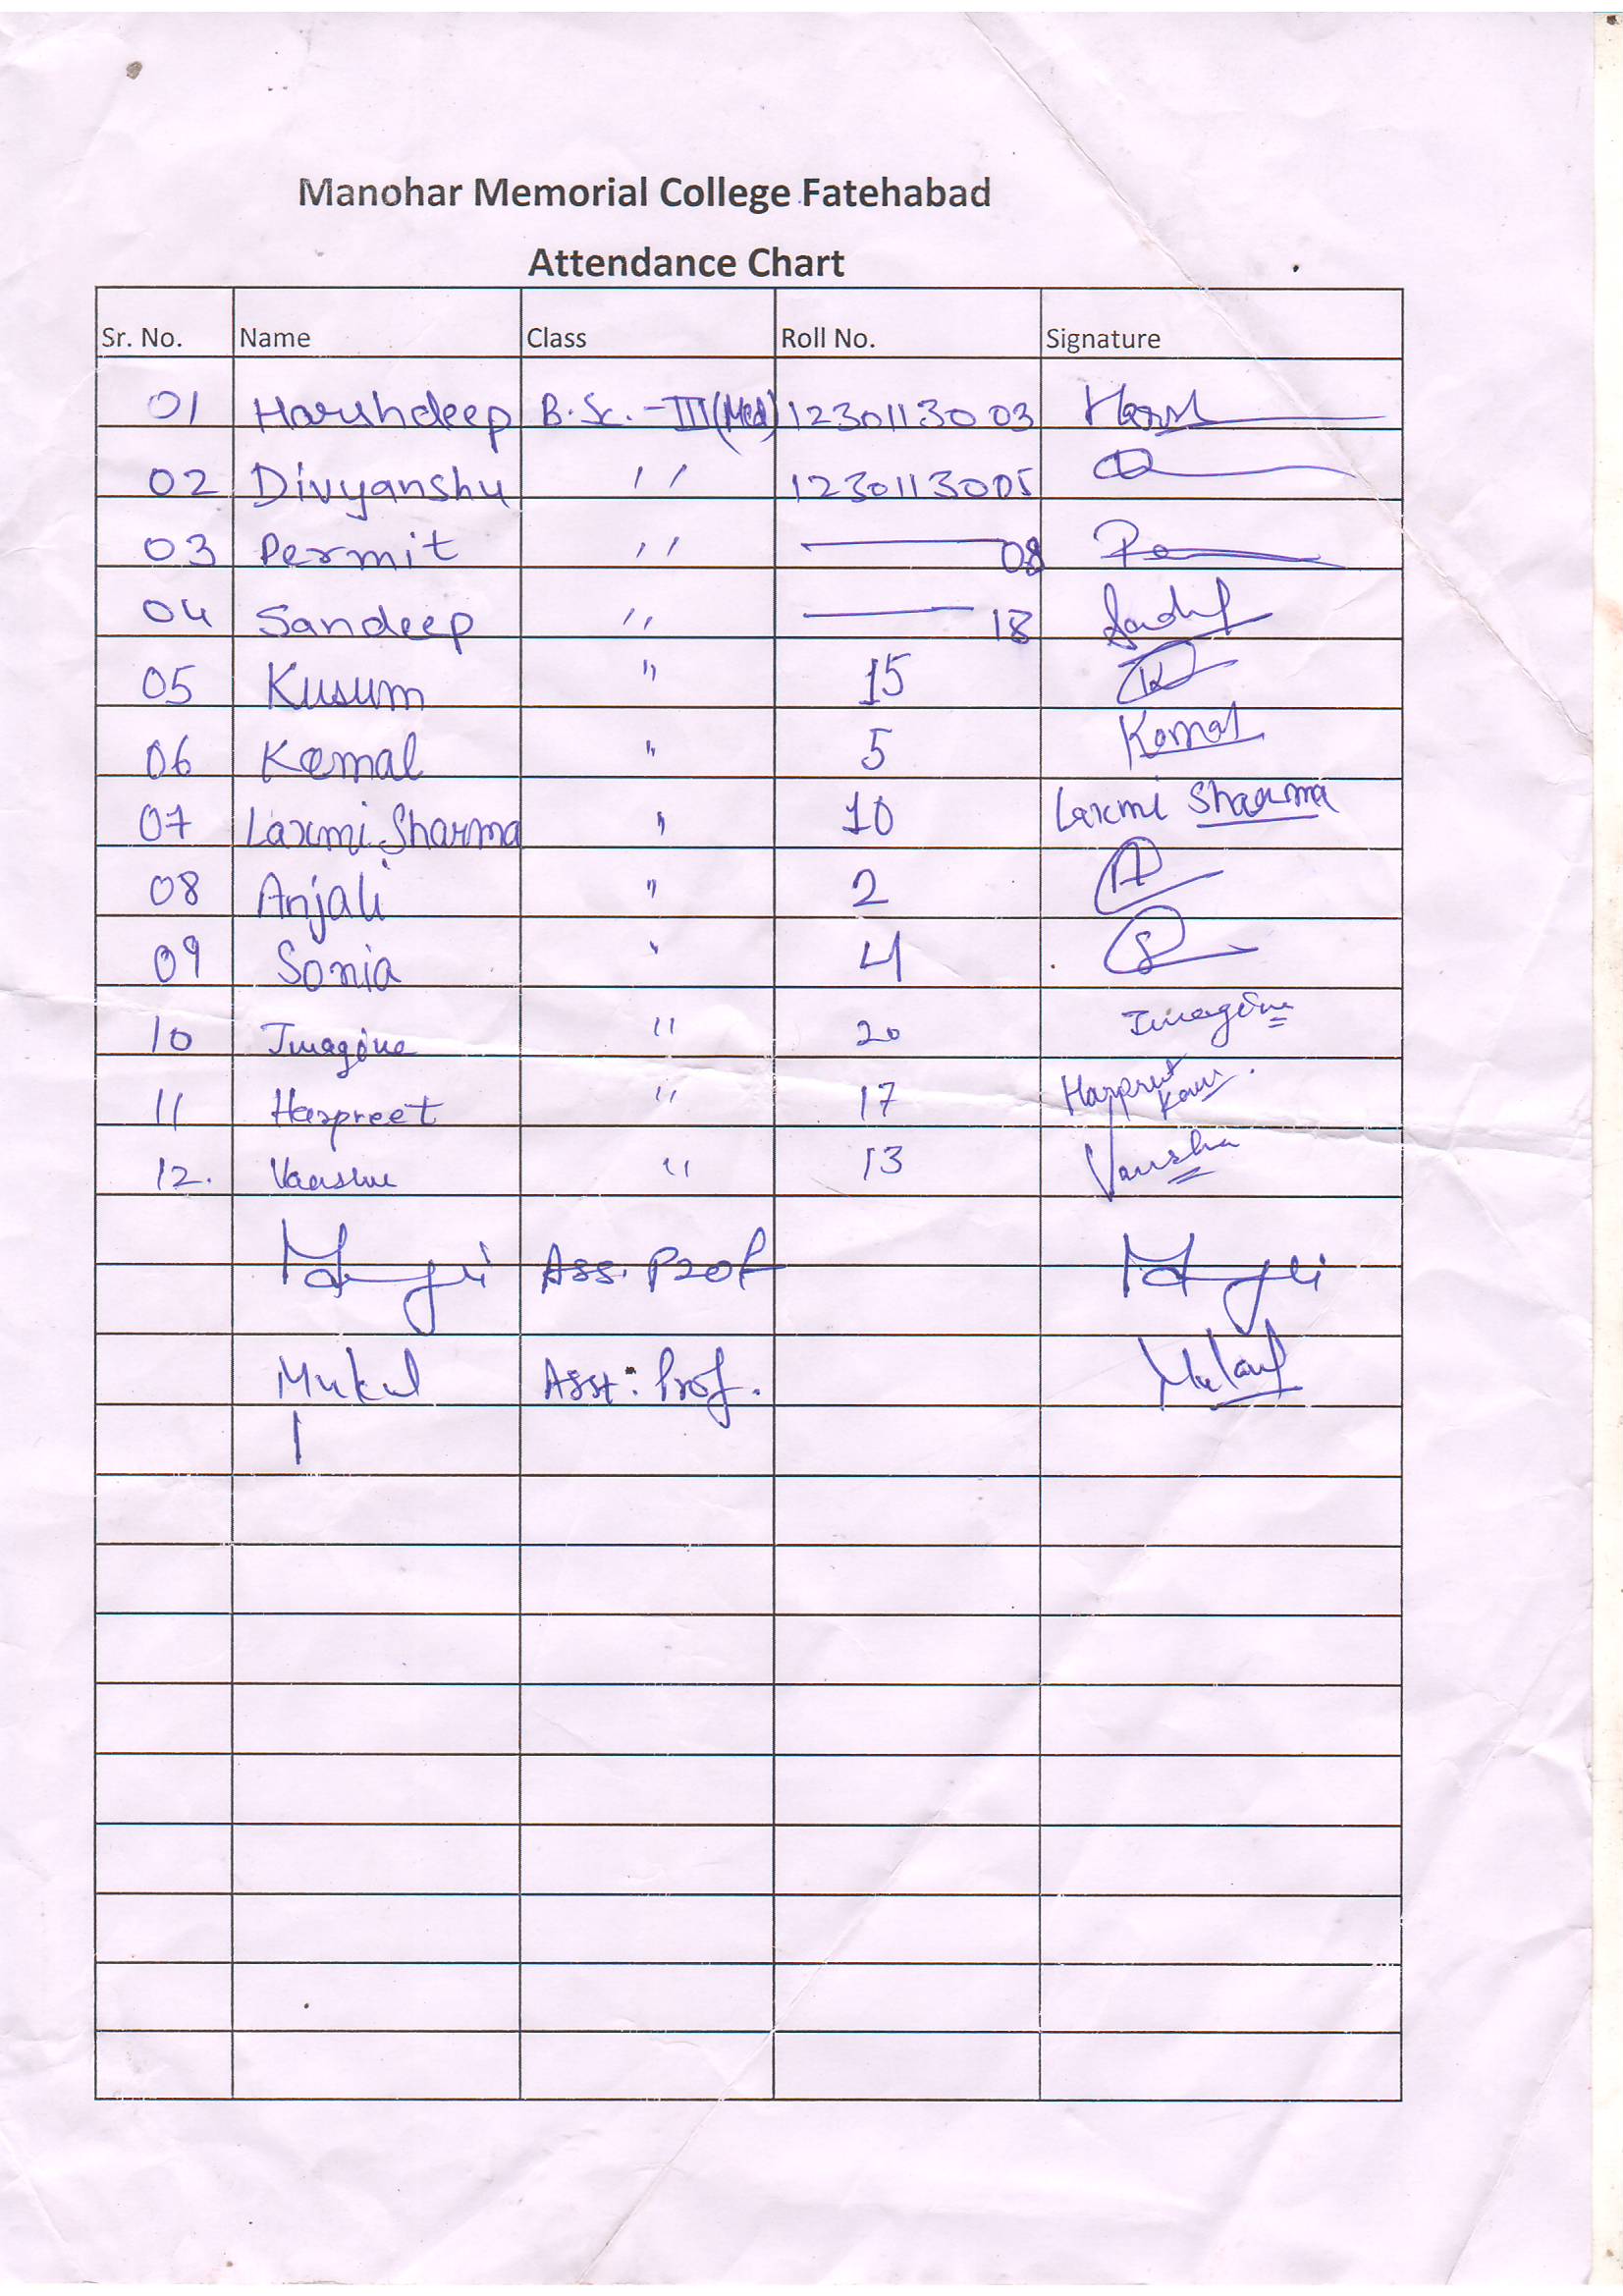 Manohar Memorial College Fatehabad
Attendance Chart
Sr. No. Name Class Roll No. Signature
01 Harshdeep B.Sc.-III(Med) 1230113003 Harsh
02 Divyanshu '' 1230113005
03 Permit '' —— 08 Pe
04 Sandeep '' —— 18
05 Kusum '' 15 K
06 Komal '' 5 Komal
07 Laxmi Sharma '' 10 Laxmi Sharma
08 Anjali '' 2 A
09 Sonia '' 4 S
10 Imagine '' 20 Imagine
11 Harpreet '' 17 Harpreet Kaur.
12. Varsha '' 13 Varsha
Ass. Prof
Mukul Asst: Prof.